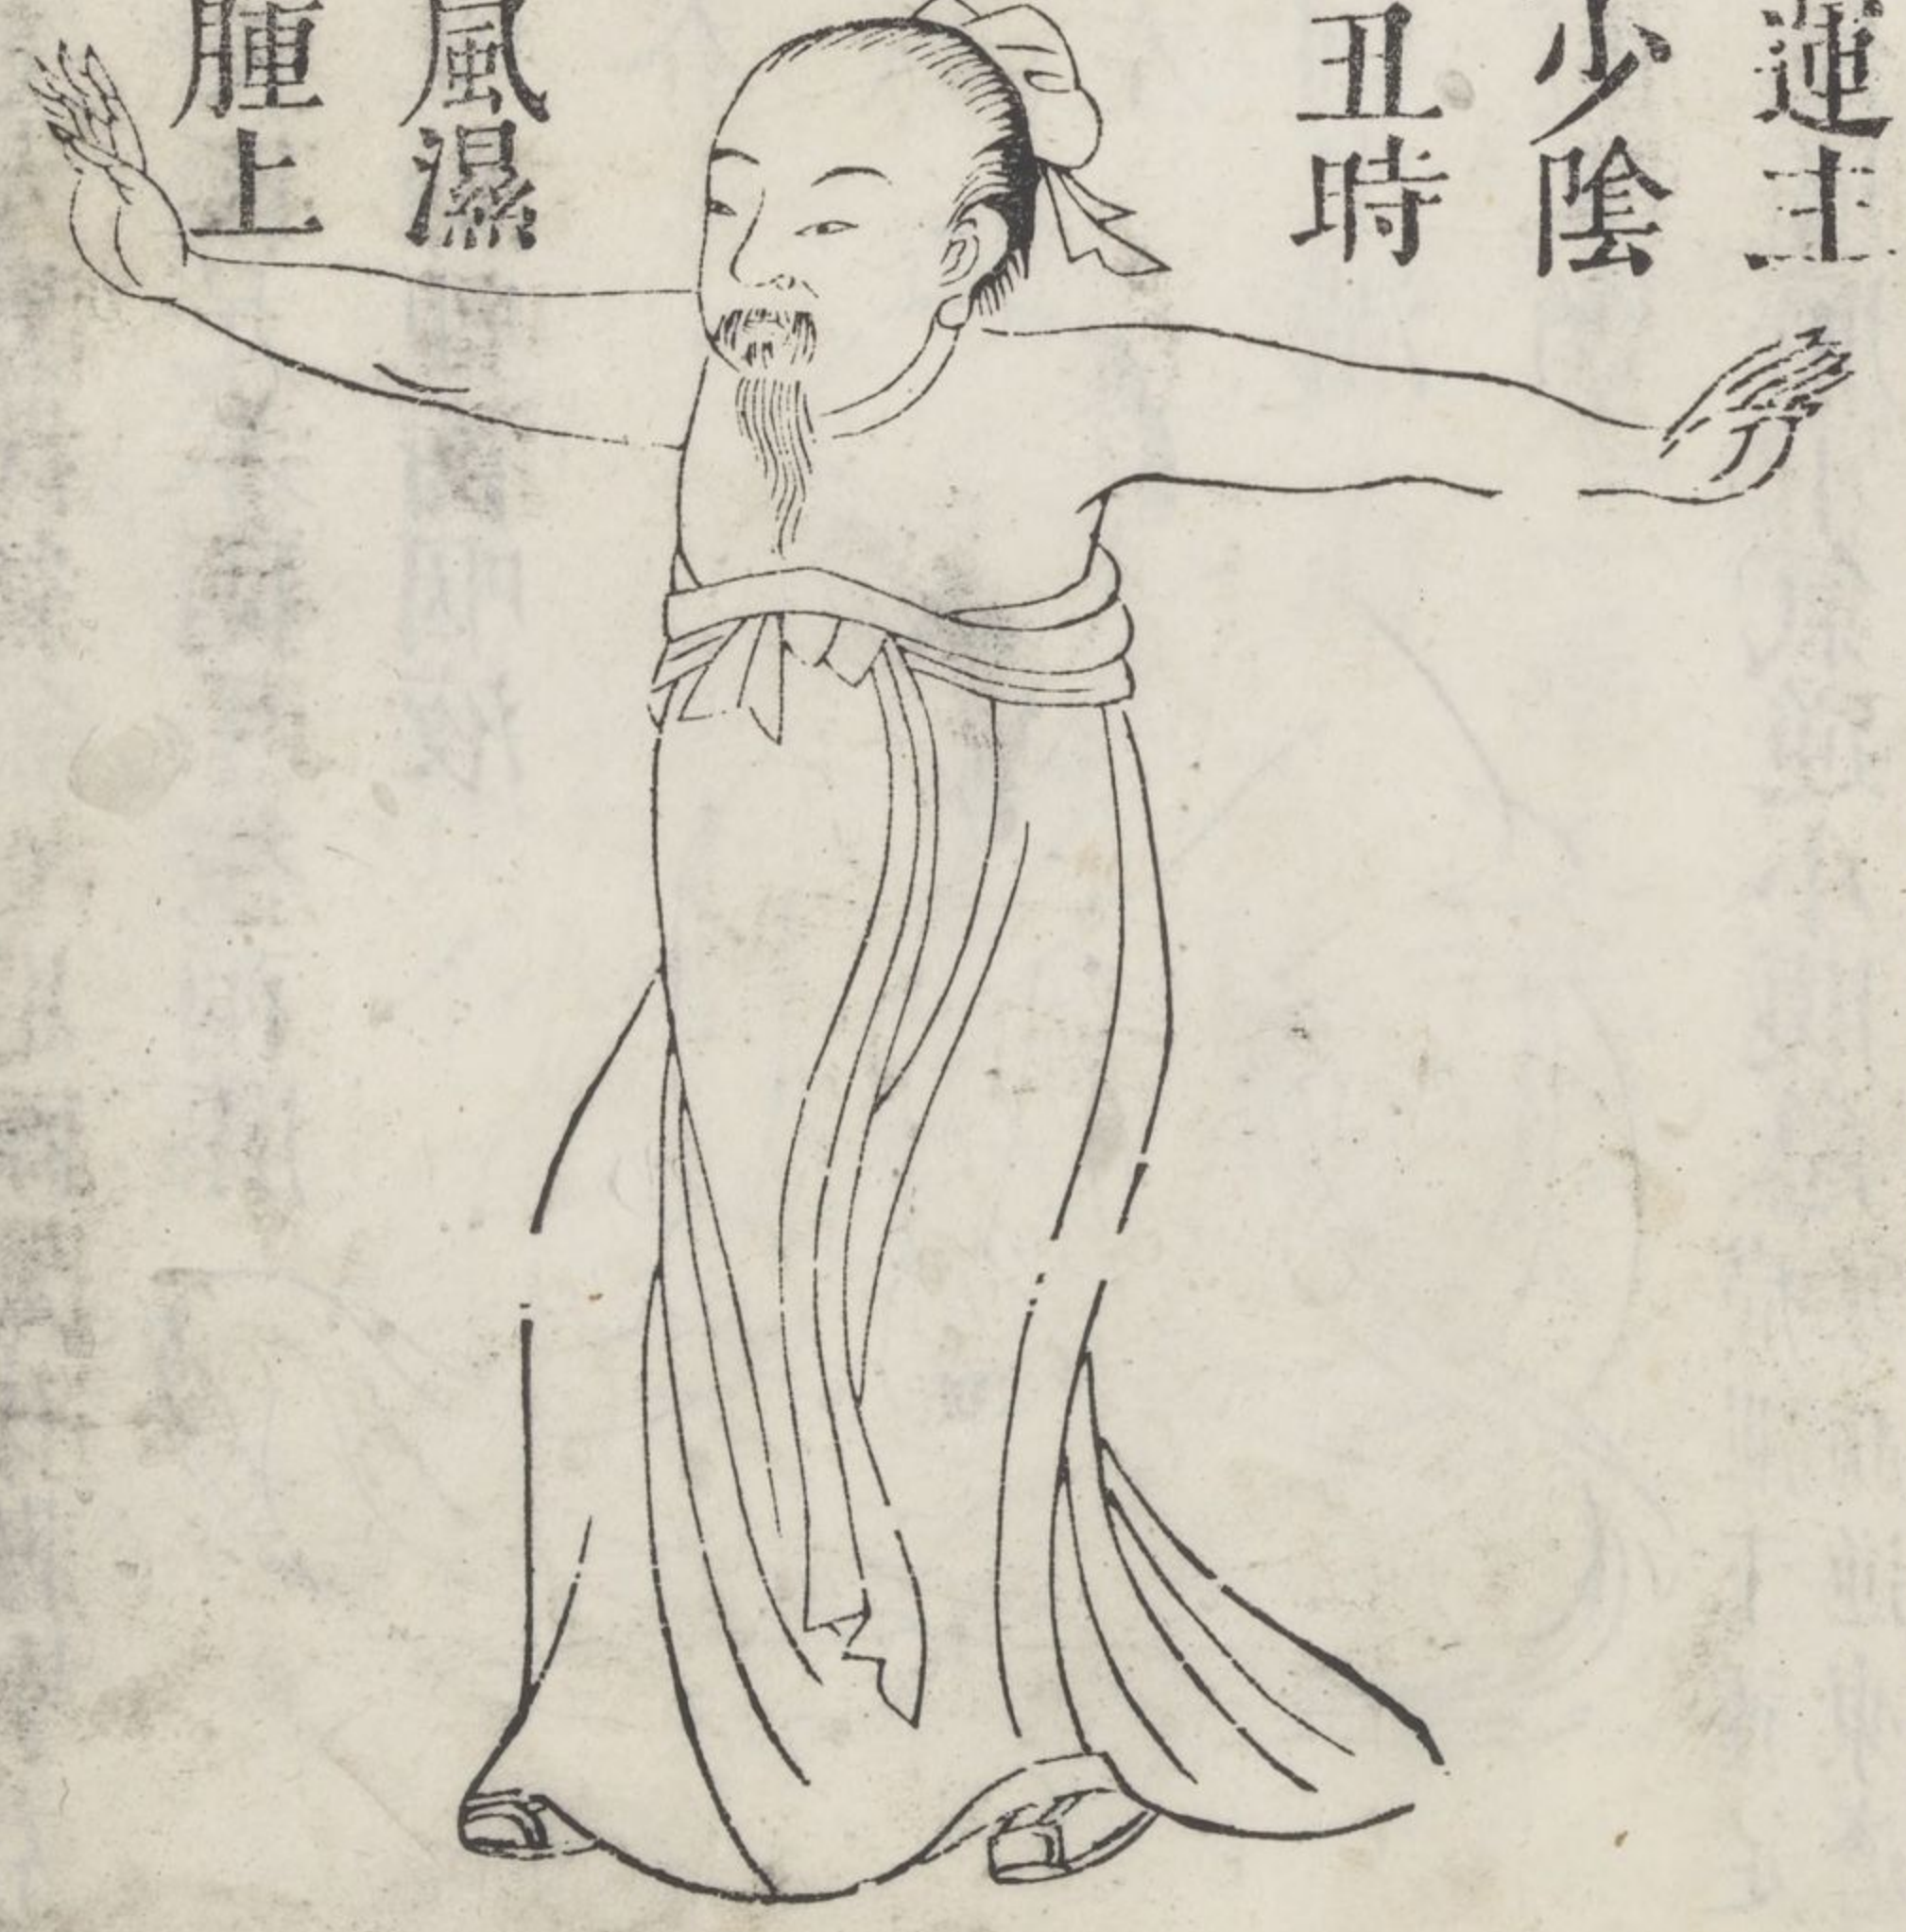 運主
少陰
丑時
風濕
腫上